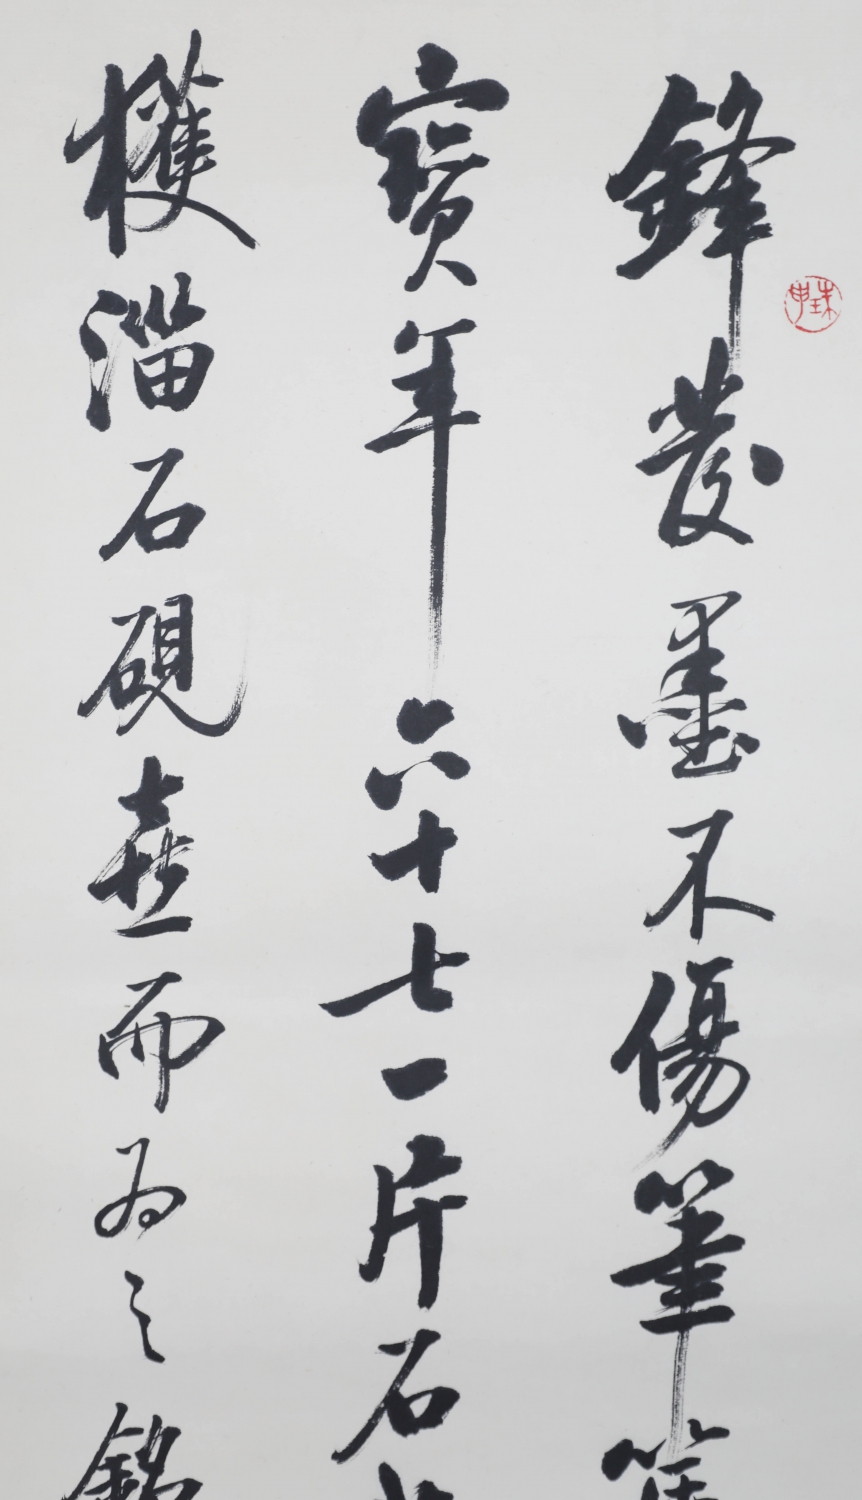 珠申
鋒發墨不傷筆
寶年六十七一片石
獲淄石硯喜而為之銘